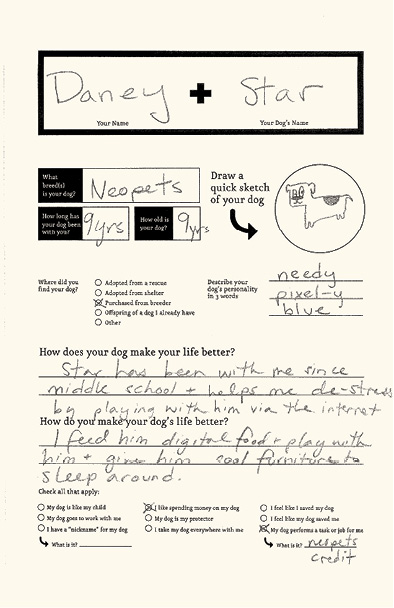 Daney + Star
Your Name Your Dog's Name
What breed(s) is your dog? Neopets
How long has your dog been with you? 9yrs How old is your dog? 9yrs
Draw a quick sketch of your dog
Where did you find your dog?
Adopted from a rescue
Adopted from shelter
Purchased from breeder
Offspring of a dog I already have
Other
Describe your dog's personality in 3 words
needy
pixel-y
blue
How does your dog make your life better?
Star has been with me since
middle school + helps me de-stress
by playing with him via the internet
How do you make your dog's life better?
I feed him digital food + play with
him + give him cool furniture to
sleep around.
Check all that apply:
My dog is like my child
My dog goes to work with me
I have a "nickname" for my dog
What is it?
I like spending money on my dog
My dog is my protector
I take my dog everywhere with me
I feel like I saved my dog
I feel like my dog saved me
My dog performs a task or job for me
What is it? neopets
credit